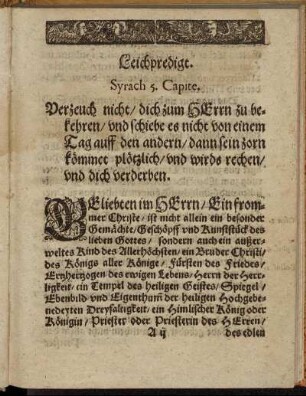 Leichpredigt.
Syrach 5. Capite.
Verzeuch nicht/ dich zum HErrn zu be-
kehren/ vnd schiebe es nicht von einem
Tag auff den andern/ dann sein zorn
kömmet plötzlich/ vnd wirds rechen/
vnd dich verderben.
GEliebten im HErrn/ Ein from-
mer Christe/ ist nicht allein ein besonder
Gemächte/ Geschöpff vnd Kunststück des
lieben Gottes/ sondern auch ein außer-
weltes Kind des Allerhöchsten/ ein Bruder Christi/
des Königs aller Könige/ Fürsten des Friedes/
Ernherzogen des ewigen Lebens/ Herrn der Herr-
ligkeit/ ein Tempel des heiligen Geistes/ Spiegel/
Ebenbild vnd Eigenthum der heiligen Hochgebe-
nedeyten Dreyfaltigkeit/ ein Himlischer König oder
Königin/ Priester oder Priesterin des HErren/
A ij des edlen